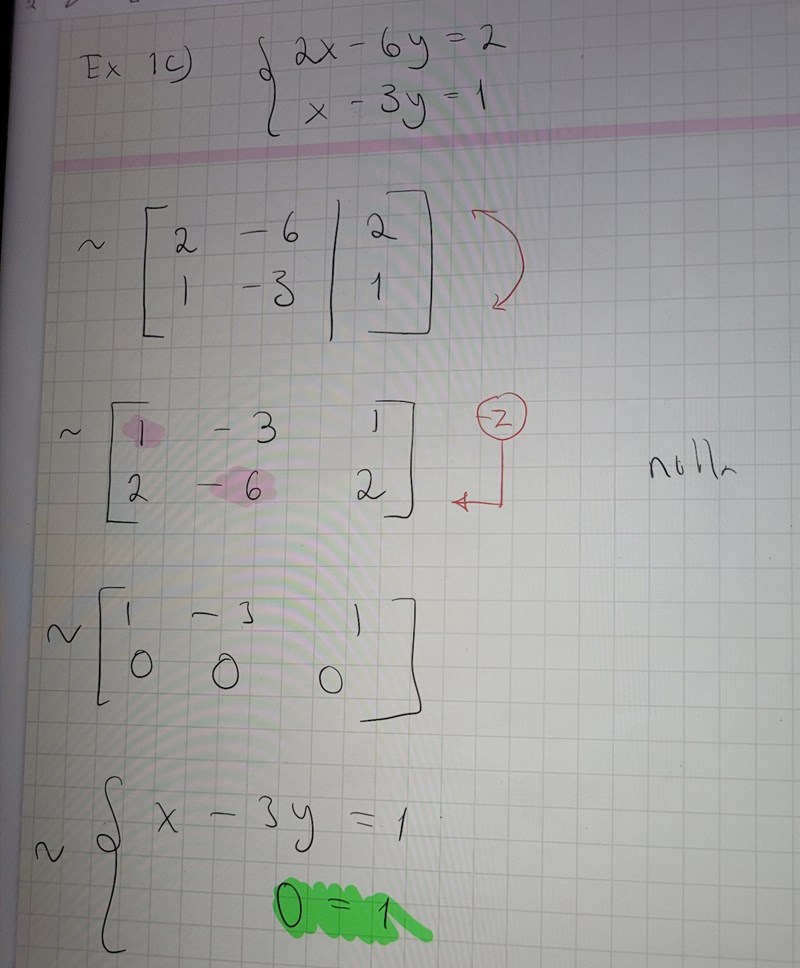 Ex 1c) { 2x - 6y = 2
x - 3y = 1
~ [ 2 -6 | 2
1 -3 | 1 ]
~ [ 1 -3 1
2 -6 2 ] -2
~ [ 1 -3 1
0 0 0 ]
~ { x - 3y = 1
0 = 1